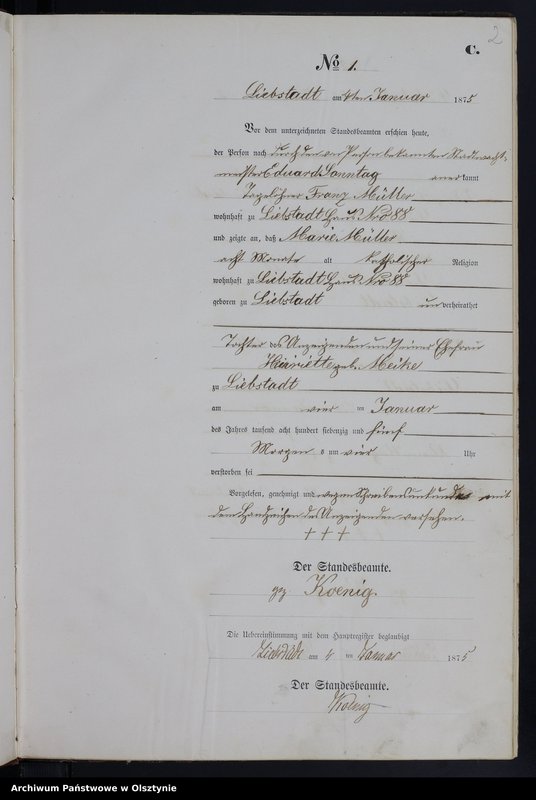 2
C.
No 1.
Liebstadt am 4ten Januar 1875
Vor dem unterzeichneten Standesbeamten erschien heute,
der Person nach durch den von Person bekannten Stadtwacht-
meister Eduard Sonntag anerkannt
Tagelöhner Franz Müller
wohnhaft zu Liebstadt Haus No 88
und zeigte an, daß Marie Müller
acht Monate alt katholischer Religion
wohnhaft zu Liebstadt Haus No 88
geboren zu Liebstadt unverheirathet
Tochter des Anzeigenden und seiner Ehefrau
Henriette geb. Meike
zu Liebstadt
am vier ten Januar
des Jahres tausend acht hundert siebenzig und fünf
Morgens um vier Uhr
verstorben sei
Vorgelesen, genehmigt und wegen Schreibensunkunde mit
dem Handzeichen des Anzeigenden versehen.
+ + +
Der Standesbeamte.
gez. Koenig.
Die Uebereinstimmung mit dem Hauptregister beglaubigt
Liebstadt am 4 ten Januar 1875
Der Standesbeamte.
Koenig
Archiwum Państwowe w Olsztynie